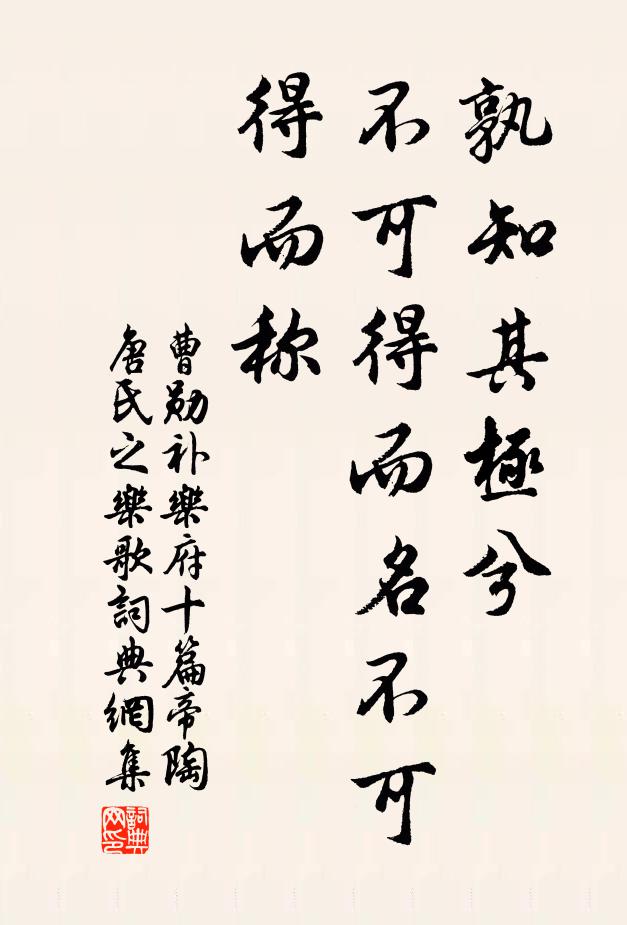 孰知其極兮
不可得而名不可
得而称
曹勋补樂府十篇帝陶
唐氏之樂歌詞典網集
詞典网印